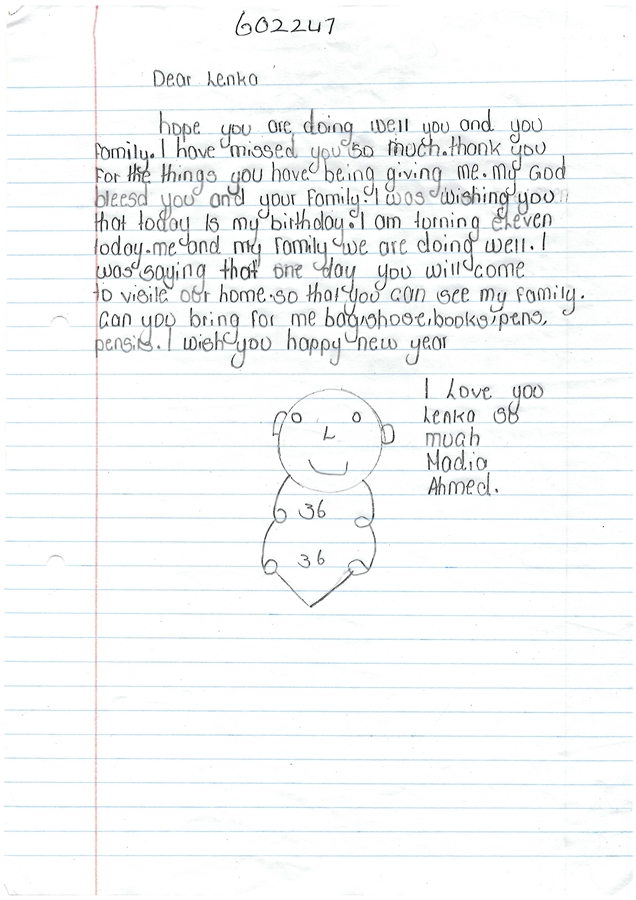 602247
Dear Lenka
hope you are doing well you and you
family. I have missed you so much. thank you
for the things you have being giving me. my God
bleesd you and your family. I was wishing you
that today is my birthday. I am turning eleven
today. me and my family we are doing well. I
was saying that one day you will come
to visite our home. so that you can see my family.
Can you bring for me bag, shose, books, pens,
pensils. I wish you happy new year
I Love you
Lenka so
muah
Madia
Ahmed.
L
36
36